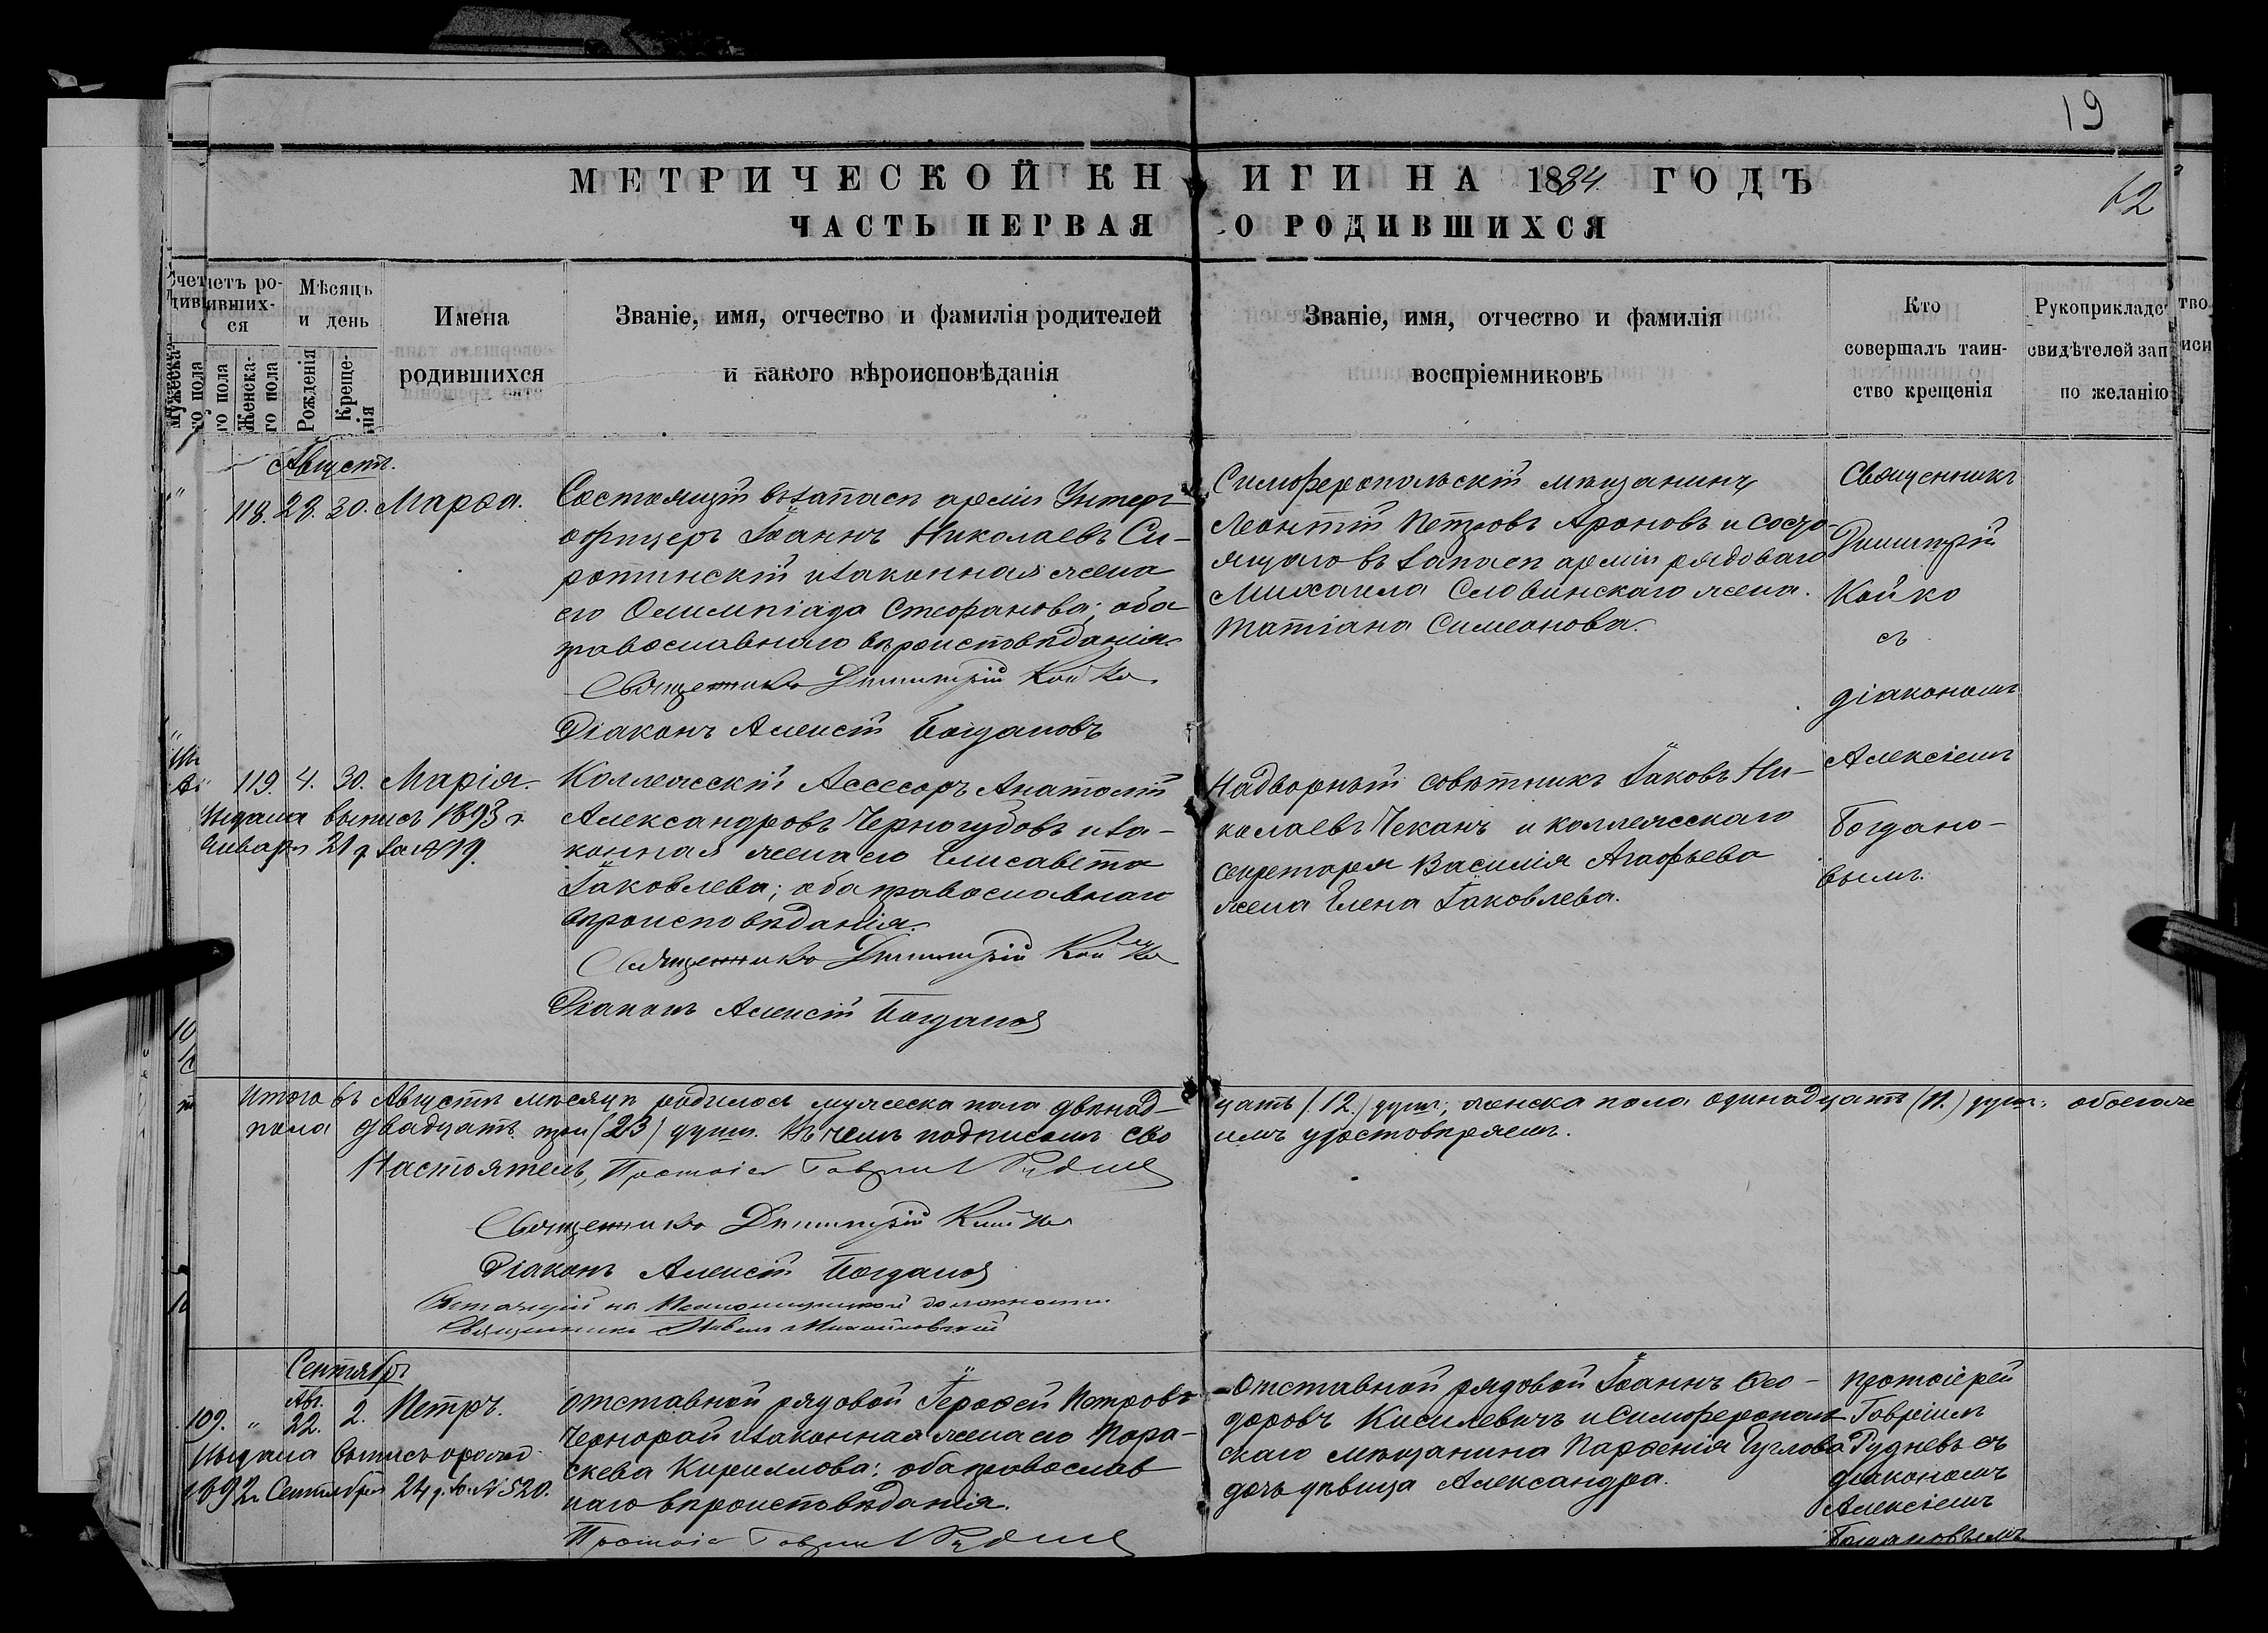 19
МЕТРИЧЕСКОЙ КНИГИ НА 1884 ГОДЪ
62
ЧАСТЬ ПЕРВАЯ О РОДИВШИХСЯ
Счетъ ро-
дивших-
ся
Мужеска-
го пола
Женска-
го пола
Мѣсяцъ
и день
Рожденія
Креще-
нія
Имена
родившихся
Званіе, имя, отчество и фамилія родителей
и какого вѣроисповѣданія
Званіе, имя, отчество и фамилія
воспріемниковъ
Кто
совершалъ таин-
ство крещенія
Рукоприкладство
свидѣтелей записи
по желанію
Августъ.
118. 28. 30. Марѳа.
Состоящій въ запасѣ арміи Унтеръ-
офицеръ Іоаннъ Николаевъ Си-
ротинскій и законная жена
его Олимпіада Стефанова; оба
православнаго вѣроисповѣданія.
Священникъ Димитрій Койко
Діаконъ Алексій Богдановъ
Симферопольскій мѣщанинъ
Леонтій Петровъ Ароновъ и состо-
ящаго въ запасѣ арміи рядоваго
Михаила Словинскаго жена
Татіана Симеонова.
Священникъ
Димитрій
Койко
съ
діакономъ
Алексіемъ
Богдано-
вымъ.
119. 4. 30. Марія.
Выдана выпись 1893 г.
Января 21 д. за № 19.
Коллежскій Ассесоръ Анатолій
Александровъ Черногубовъ и за-
конная жена его Елисавета
Іаковлева; оба православнаго
вѣроисповѣданія.
Священникъ Димитрій Койко
Діаконъ Алексій Богдановъ
Надворный совѣтникъ Іаковъ Ни-
колаевъ Чеканъ и коллежскаго
секретаря Василія Агафьева
жена Елена Іаковлева.
Итого въ Августѣ мѣсяцѣ родилось мужеска пола двѣнад-
цать (12.) душъ; женска пола одинадцать (11.) душъ; обоего же
пола двадцать три (23) душъ. Въ чемъ подписомъ сво
имъ удостовѣряемъ.
Настоятель, Протоіер Гавріилъ Рудневъ
Священникъ Димитрій Койко
Діаконъ Алексій Богдановъ
Состоящій на Псаломщицкой должности
Священникъ Павелъ Михайловскій
Сентябрь
109. " Авг. 22. 2. Петръ.
Выдана выпись
1892 г. Сентября 24 д. за № 520.
Отставной рядовой Іероѳей Петровъ
Чернорай и законная жена его Пара-
скева Кириллова; оба православ
наго вѣроисповѣданія.
Протоіер Гавріилъ Рудневъ
Отставной рядовой Іоаннъ Ѳео-
доровъ Кисилевичъ и Симферополь-
скаго мѣщанина Парѳенія Чуглова
дочь дѣвица Александра.
Протоіерей
Гавріилъ
Рудневъ съ
діакономъ
Алексіемъ
Богдановымъ.